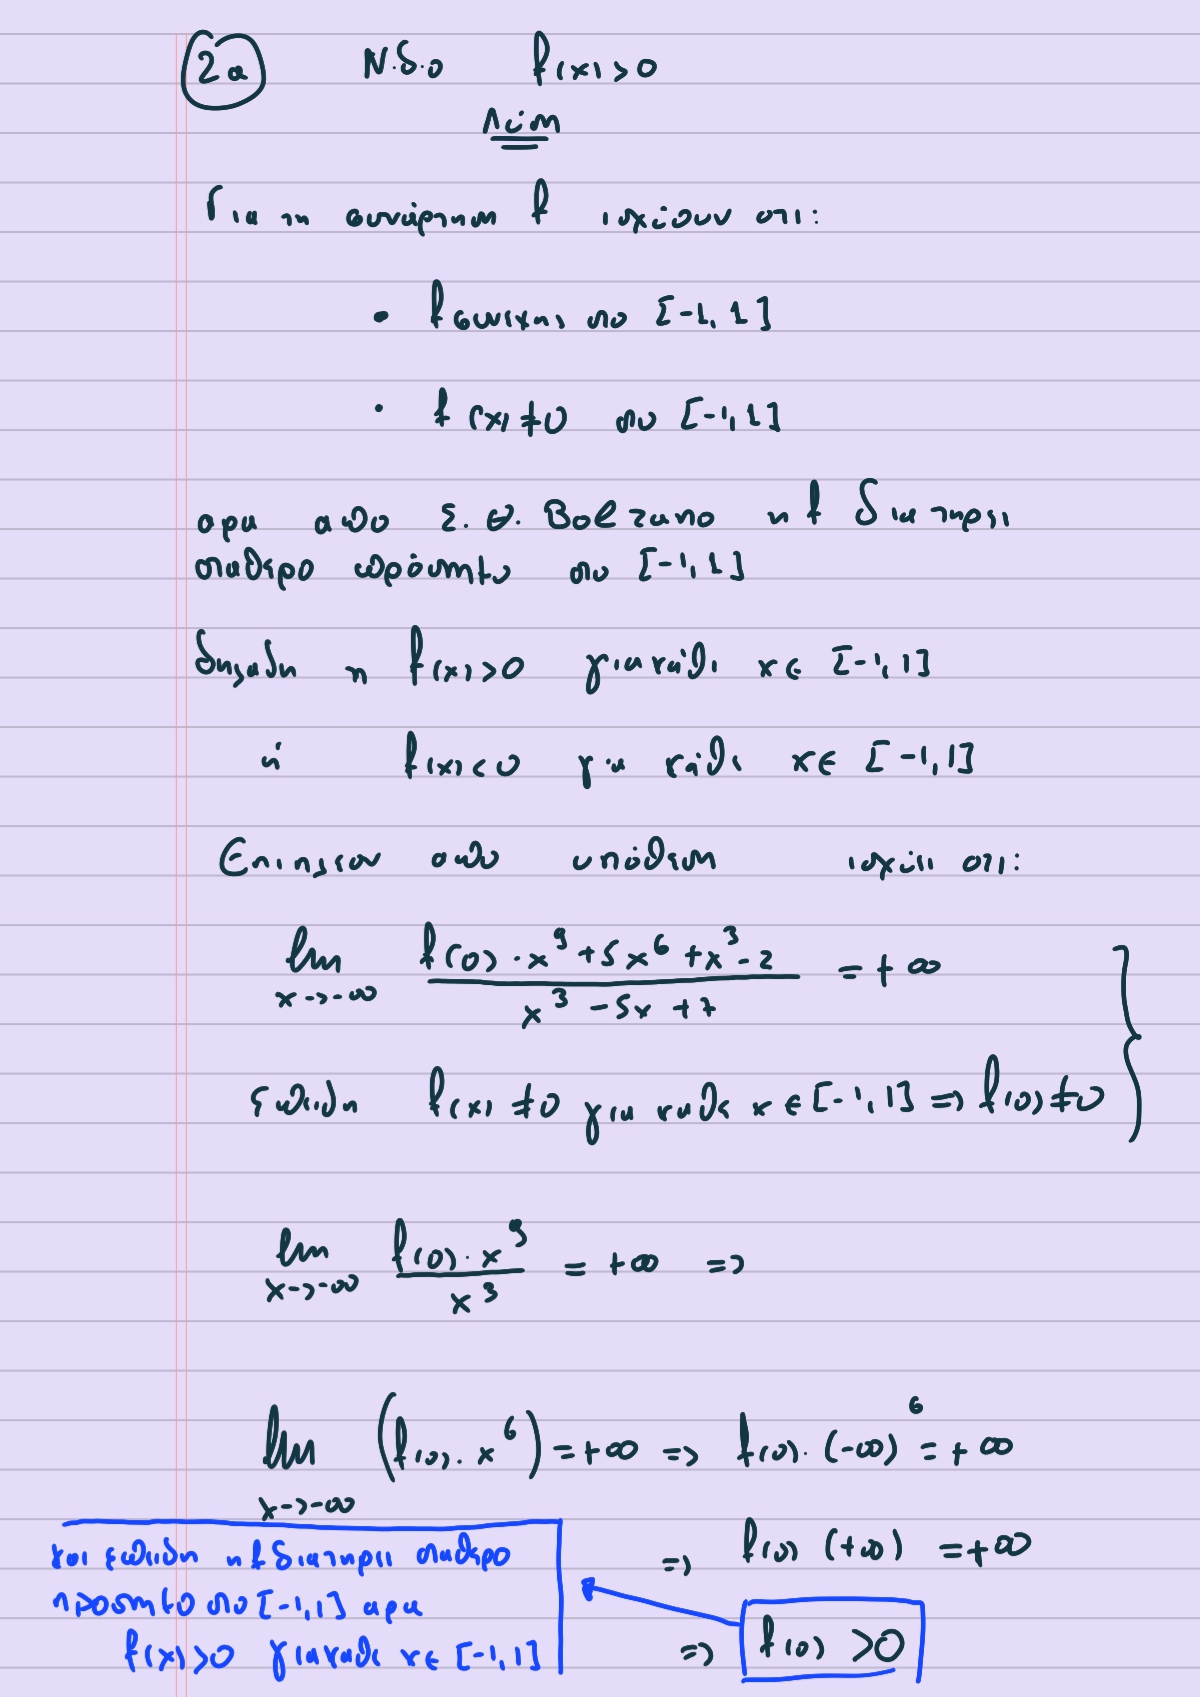 2α Ν.δ.ο f(x)>0
Λύση
Για τη συνάρτηση f ισχύουν οτι:
• f συνεχης στο [-1,1]
• f(x)≠0 στο [-1,1]
αρα απο Σ.Θ. Bolzano η f διατηρει
σταθερο πρόσημο στο [-1,1]
δηλαδη η f(x)>0 για κάθε x∈ [-1,1]
ή f(x)<0 για κάθε x∈ [-1,1]
Επιπλεον απο υπόθεση ισχύει οτι:
lim x->-∞ (f(0)·x⁹+5x⁶+x³-2)/(x³-5x+7) = +∞
Επειδη f(x)≠0 για καθε x∈[-1,1] => f(0)≠0
lim x->-∞ (f(0)·x⁹)/x³ = +∞ =>
lim x->-∞ (f(0)·x⁶)=+∞ => f(0)·(-∞)⁶=+∞
=> f(0) (+∞) =+∞
=> f(0) >0
και επειδη η f διατηρει σταθερο
προσημο στο [-1,1] αρα
f(x)>0 για καθε x∈ [-1,1]